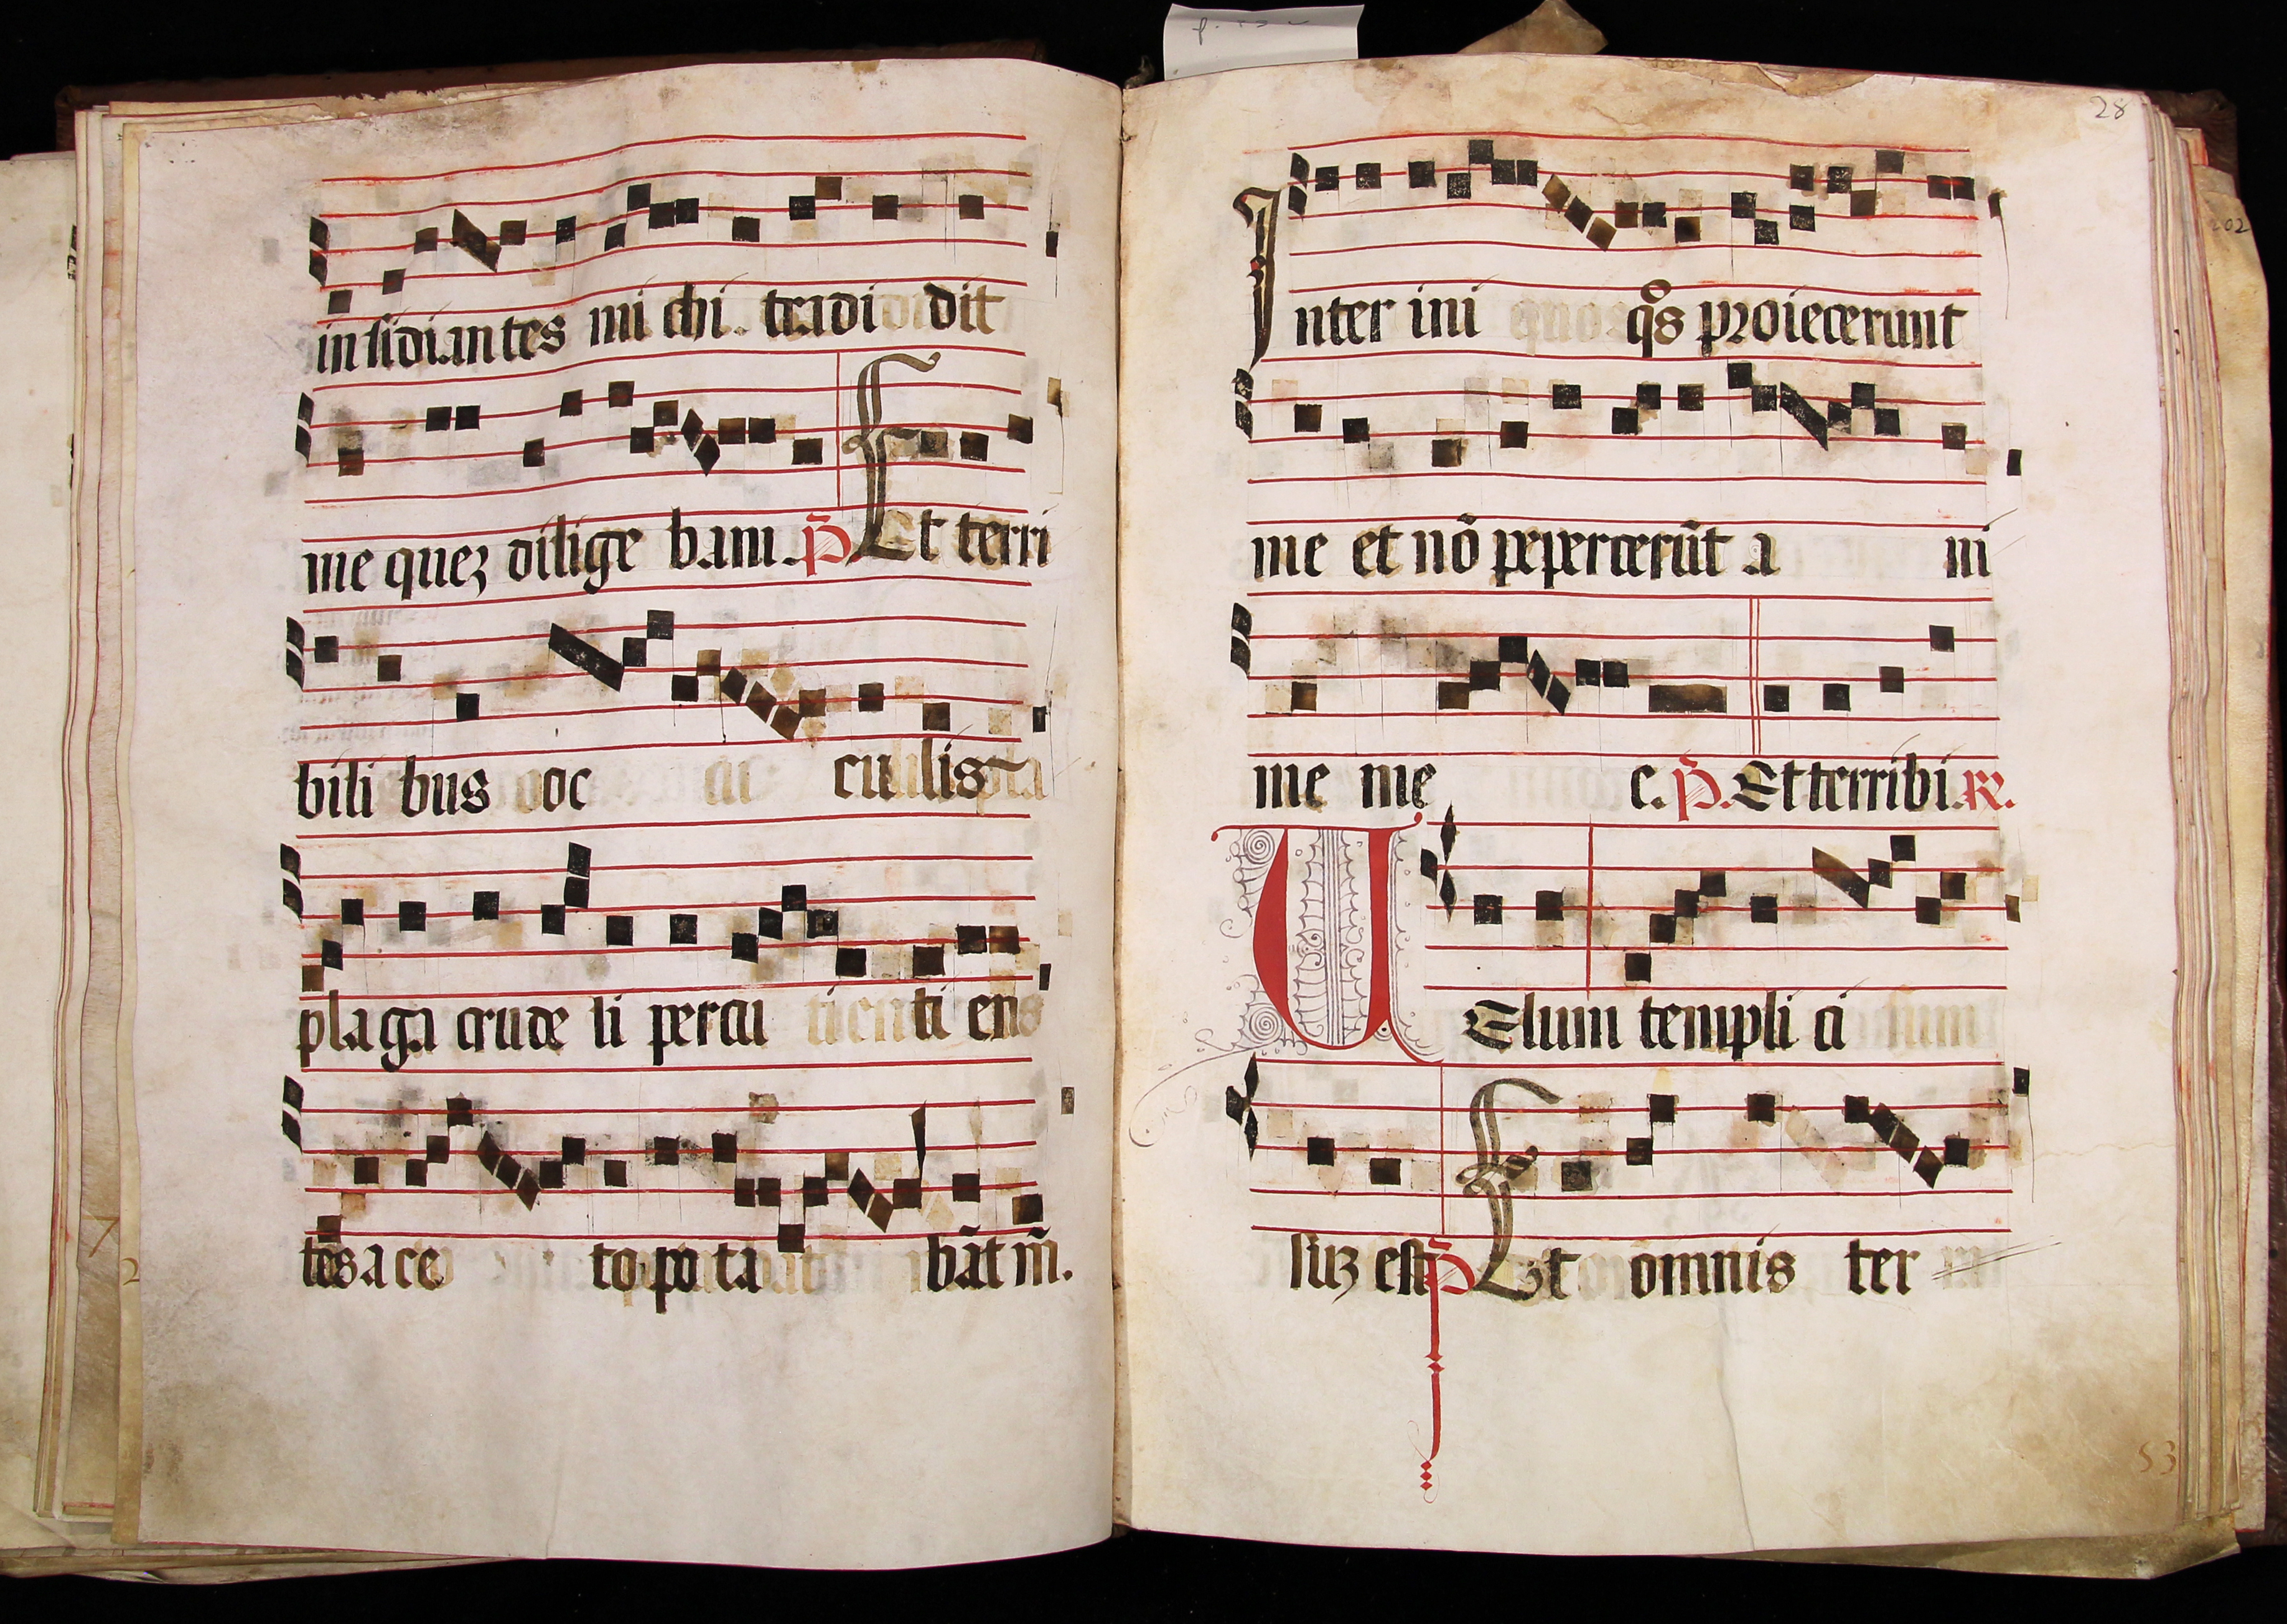 insidiantes mi chi. tradi dit
me quez dilige bam. p̃. Et terri
bili bus oc cu lis
plaga crude li percu ti ens
tes a ce to po ta bãt m̃.
28
Inter ini qos proiecerunt
me et nõ pepercerũt a ni
me me e. p̃. Et terribi. R.
UElum templi ci
suz est p̃ Et omnis ter
53
202
7
2